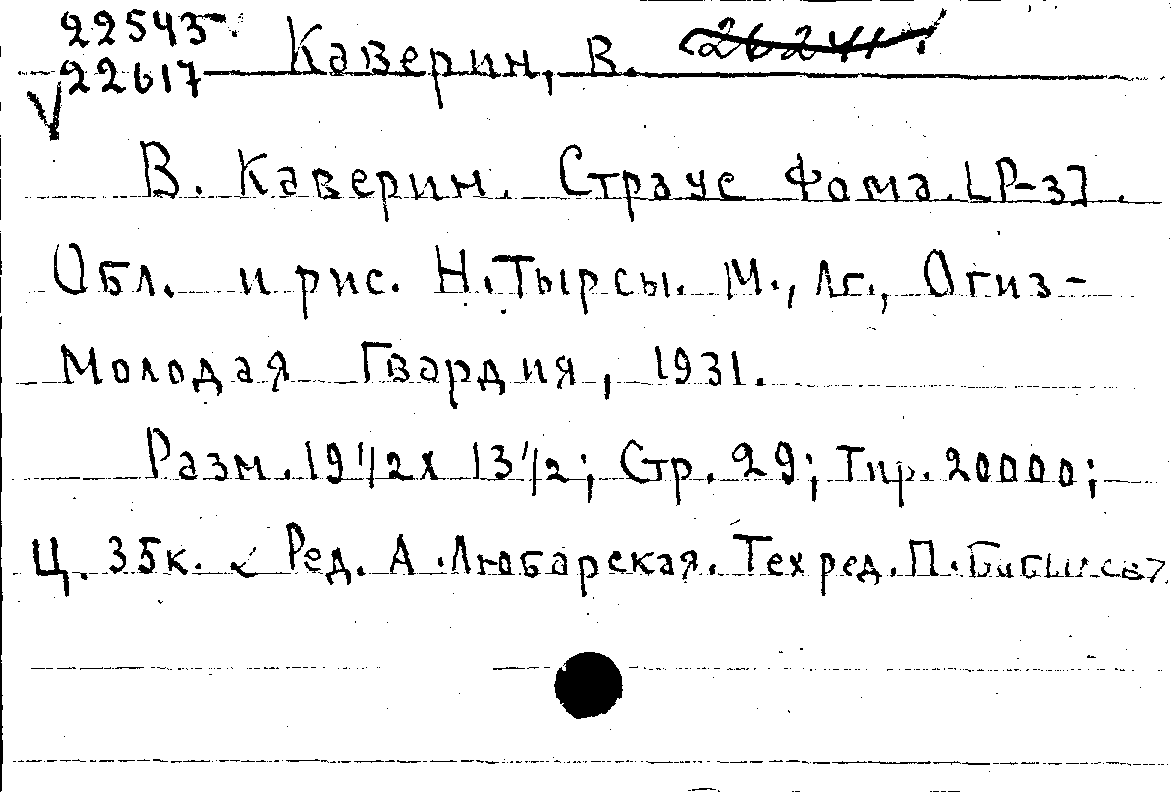 22543
22617 Каверин, В. 26241
В. Каверин. Страус Фома. [Р-з].
Обл. и рис. Н. Тырсы. М., Лг., Огиз-
Молодая Гвардия, 1931.
Разм. 19 1/2 х 13 1/2; Стр. 29; Тир. 20000;
Ц. 35к. Ред. А. Любарская. Техред. П.